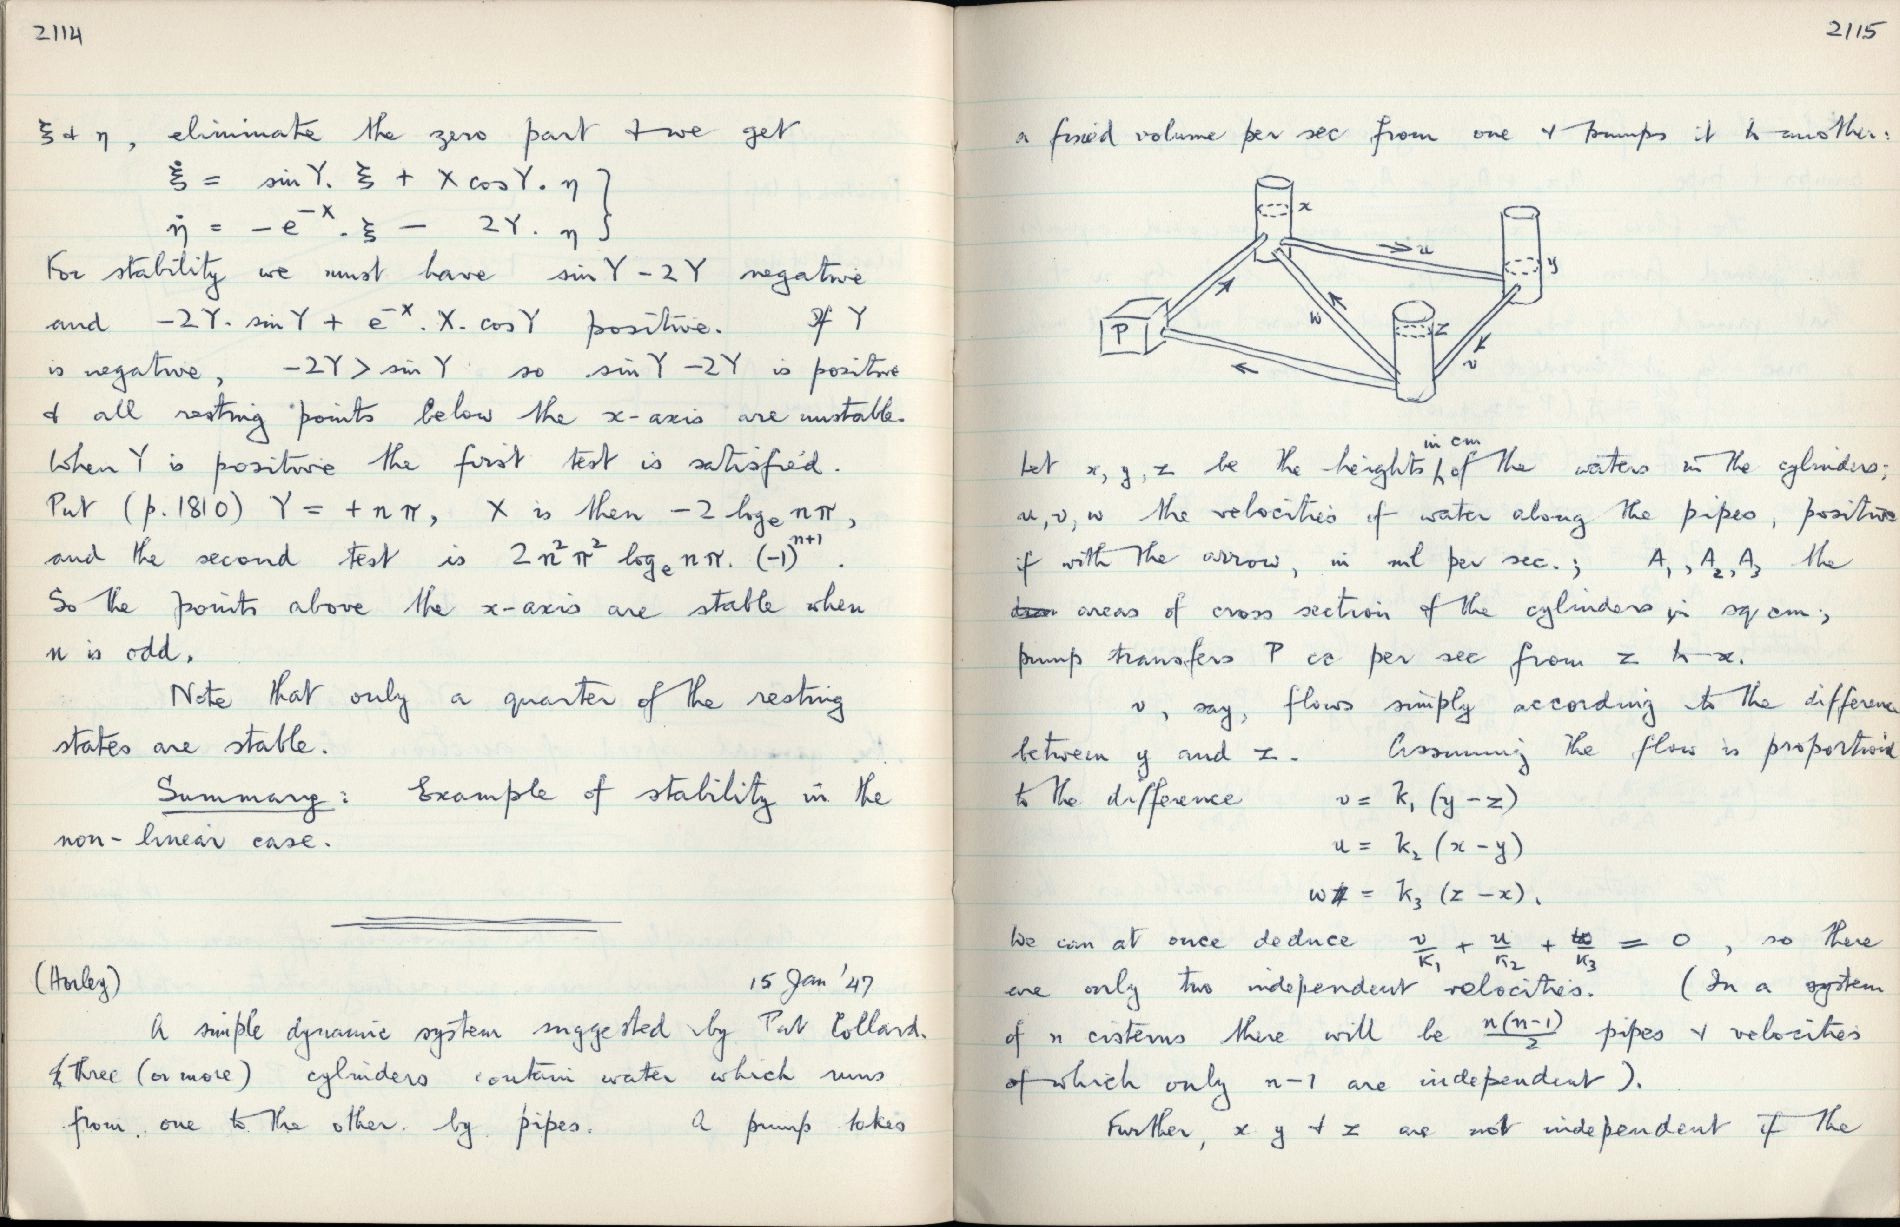 2114
ξ & η, eliminate the zero part & we get
ξ̇ = sin Y. ξ + X cos Y. η }
η̇ = -e^-X. ξ - 2Y. η }
For stability we must have sin Y - 2Y negative
and -2Y. sin Y + e^-X. X. cos Y positive. If Y
is negative, -2Y > sin Y so sin Y - 2Y is positive
& all resting points below the x-axis are unstable.
When Y is positive the first test is satisfied.
Put (p. 1810) Y = + n π, X is then -2 logₑ nπ,
and the second test is 2n²π² logₑ nπ. (-1)^n+1.
So the points above the x-axis are stable when
n is odd.
Note that only a quarter of the resting
states are stable.
Summary: Example of stability in the
non-linear case.
15 Jan '47
A simple dynamic system suggested by Pat Collard.
three (or more) cylinders contain water which runs
from one to the other by pipes. A pump takes
2115
a fixed volume per sec from one & pumps it to another:
x
u
y
w
P
z
v
in cm
Let x, y, z be the heights of the waters in the cylinders;
u, v, w the velocities of water along the pipes, positive
if with the arrow, in ml per sec.; A₁, A₂, A₃ the
areas of cross section of the cylinders in sq cm;
pump transfers P cc per sec from z to x.
v, say, flows simply according to the difference
between y and z. Assuming the flow is proportional
to the difference v = k₁ (y - z)
u = k₂ (x - y)
w = k₃ (z - x).
We can at once deduce v/k₁ + u/k₂ + w/k₃ = 0, so there
are only two independent velocities. (In a system
of n cisterns there will be n(n-1)/2 pipes & velocities
of which only n-1 are independent).
Further, x y & z are not independent if the